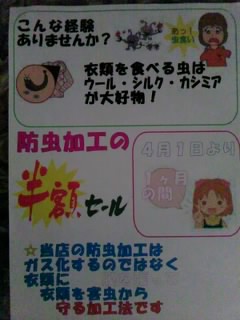 こんな経験
ありませんか？
あっ！
虫食い
衣類を食べる虫は
ウール・シルク・カシミア
が大好物！
防虫加工の
半額セール
４月１日より
１ヶ月
の間
☆当店の防虫加工は
ガス化するのではなく
衣類に
衣類を害虫から
守る加工法です